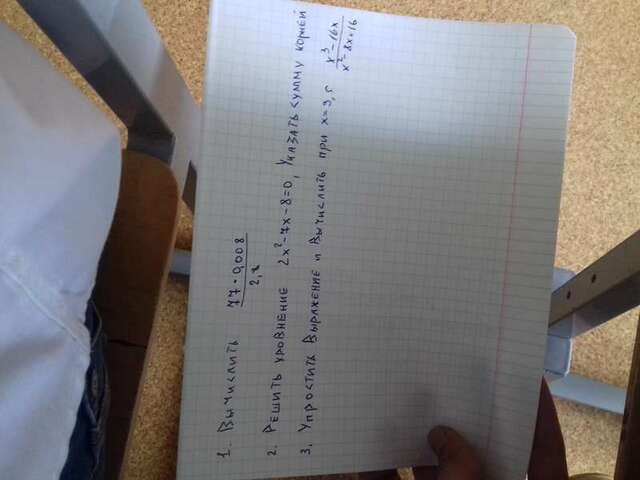 1. Вычислить 77·0,008 / 2,2
2. Решить уровнение 2x²-7x-8=0, Указать сумму корней
3. Упростить выражение и вычислить при x=3,5 x³-16x / x²-8x=16